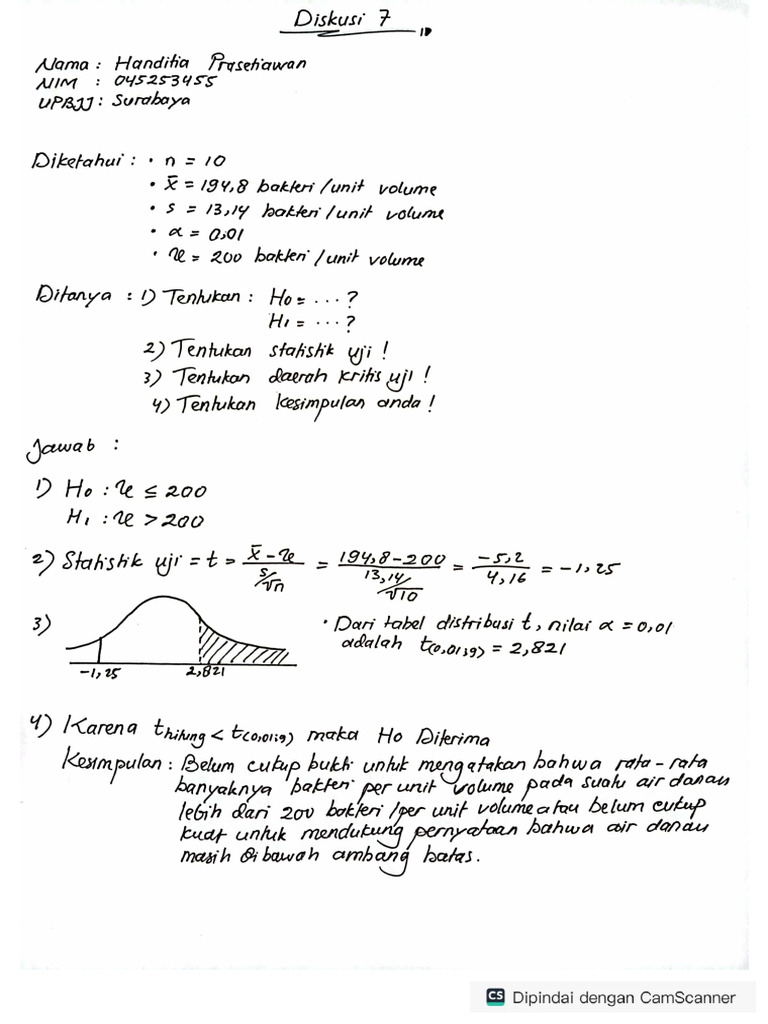 Diskusi 7
Nama : Handitia Prasetiawan
NIM : 045253455
UPBJJ : Surabaya
Diketahui : • n = 10
• x̄ = 194,8 bakteri /unit volume
• s = 13,14 bakteri /unit volume
• α = 0,01
• μ = 200 bakteri /unit volume
Ditanya : 1) Tentukan : Ho = ... ?
H₁ = ... ?
2) Tentukan statistik uji !
3) Tentukan daerah kritis uji !
4) Tentukan kesimpulan anda !
Jawab :
1) Ho : μ ≤ 200
H₁ : μ > 200
2) Statistik uji = t = (x̄ - μ)/(s/√n) = (194,8 - 200)/(13,14/√10) = -5,2/4,16 = -1,25
3) -1,25 2,821
• Dari tabel distribusi t, nilai α = 0,01
adalah t(0,01;9) = 2,821
4) Karena t hitung < t(0,01;9) maka Ho Diterima
Kesimpulan : Belum cukup bukti untuk mengatakan bahwa rata-rata
banyaknya bakteri per unit volume pada suatu air danau
lebih dari 200 bakteri /per unit volume atau belum cukup
kuat untuk mendukung pernyataan bahwa air danau
masih dibawah ambang batas.
CS Dipindai dengan CamScanner